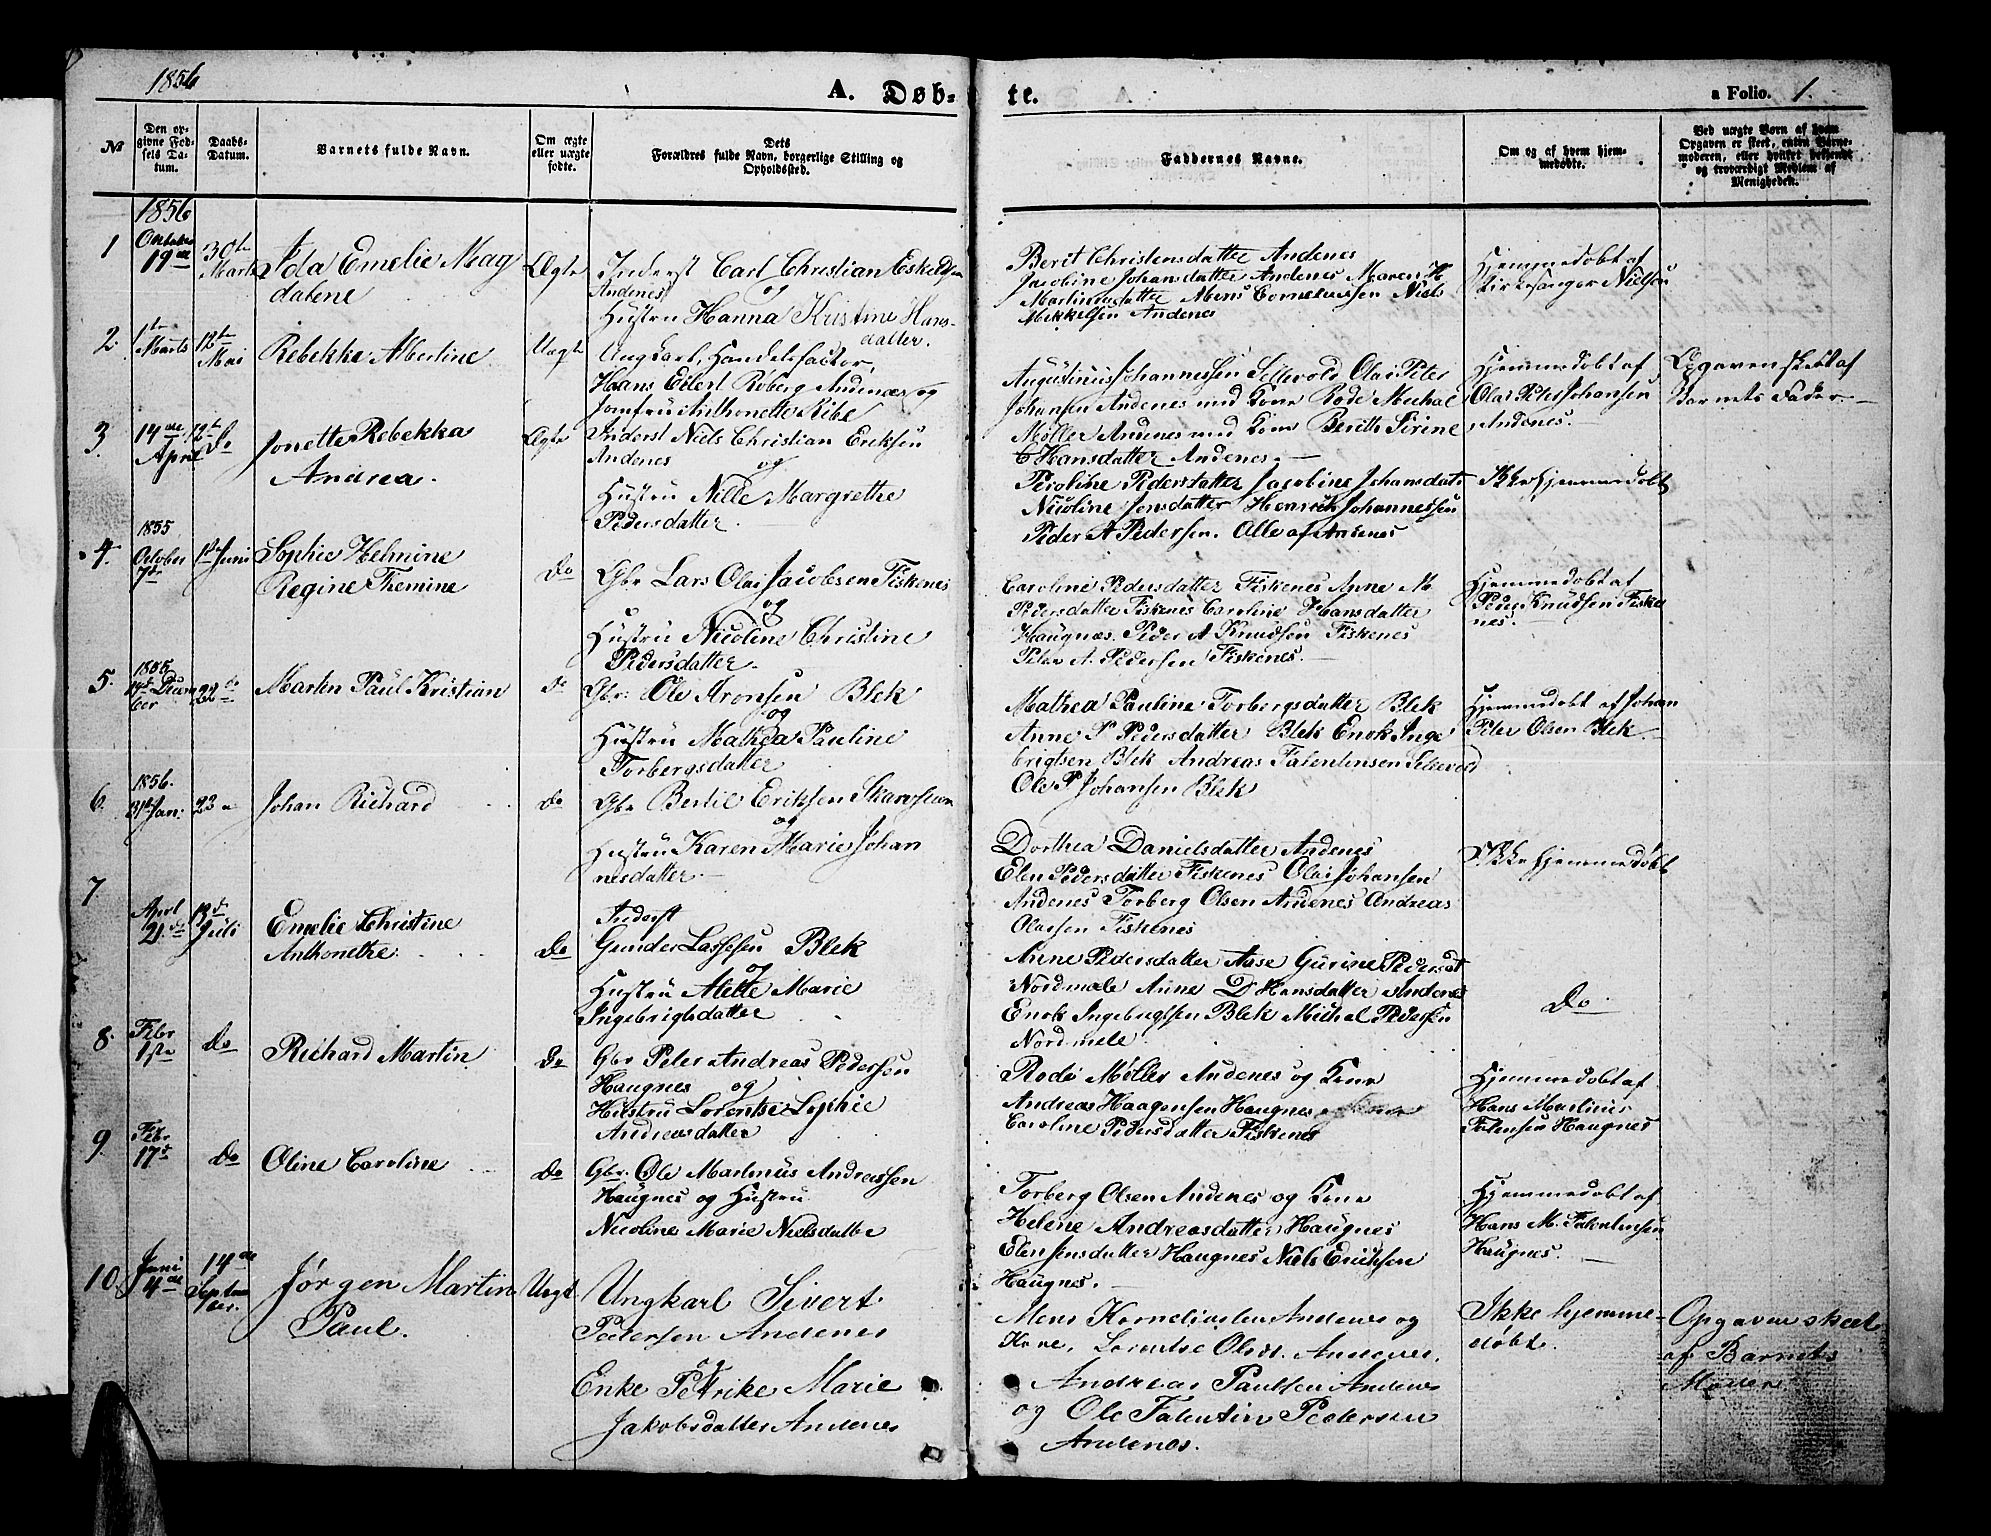 1856
A. Døb-
te.
a Folio. 1.
№
Den op-
givne Fød-
sels Da-
tum.
Daabs-
Datum.
Barnets fulde Navn.
Om ægte
eller uægte
fødte.
Dets
Forældres fulde Navn, borgerlige Stilling og
Opholdssted.
Faddernes Navne.
Om og af hvem hjem-
medøbte.
Ved uægte Børn af hvem
Opgaven er skeet, enten Barne-
moderen, eller hvilket bekjendt
og troværdigt Medlem af
Menigheden.
1856
1
19de
30te
Marts
Ida Emelie Mag
dalene
Ægte
Inderst Carl Christian Eskildsen
Andenes
og
Hustru Hanna Kristine Hans-
datter.
Berit Christensdatter Andenes
Jacobine Johansdatter Andenes Maren H.
Martinusdatter Mens Corneliussen Niels
Mikkelsen Andenes
Hjemmedøbt af
Kirkesanger Nielsen
2.
1te
Marts
12te
Mai
Rebekke Albertine
Uægte
Ungkarl, Handelsfactor,
Haans Edlert Røberg Andenæs og
Jomfrue Anthonette Ribe
Augustinus Johannessen Sellevold Olai Peter
Johansen Andenes med Kone Rode Michal
Møller Andenes med Kone Berith Sirine
C Hansdatter Andenes.
Hjemmedøbt af
Olai Peter Johansen
Andenes.
Opgaven skett af
Barnets Fader
3.
14de
April
12te do
Jonette Rebekka
Andrea.
Ægte
Inderst Niels Christian Eriksen
Andenes
og
Hustru Nille Margrethe
Pedersdatter
Peroline Pedersdatter Jacobine Johansdat.
Nicoline Jensdatter Henrik Johannessen
Peder A Pedersen. Alle af Andenes
Ikke hjemmedøbt
4.
1855
October
7de
1st Juni
Sophie Helmine
Regine Themine
Do
Gbr Lars Olai Jacobsen Fiskenes
og
Hustru Nicoline Christine
Pedersdatter.
Caroline Pedersdatter Fiskenes Anne M
Pedersdatter Fiskenes Caroline Hansdatter
Haugnæs. Peder A Knudsen Fiskenes
Peter A. Pedersen Fiskenes.
Hjemmedøbt af
Peder Knudsen Fiske
nes.
5.
1855
ber
Marten Paul Kristian
do
Gbr. Ole Aronsen Blek
og
Hustru Mathea Pauline
Torbergsdatter
Mathea Pauline Torbergsdatter Blek
Anne P Pedersdatter Blek Enok Inge
brigtsen Blek Andreas Falentinsen Sellevold
Ole P Johansen Blek
Hjemmedøbt af Johan
Peter Olsen Blek
6.
1856.
31te Jan.
23
Johan Richard
do
Gbr Bertil Eriksen Skarvstein
og
Hustru Karen Marie Johan
nesdatter
Dorthea Danielsdatter Andenes
Elen Pedersdatter Fiskenes Olai Johansen
Andenes Torberg Olsen Andenes Andreas
Olassen Fiskenes
Ikke hjemmedøbt
7
April
21de
13de
Juli
Emelie Christine
Anthonethe
Do
Inderst
Gunder Lassesen Blek
og
Hustru Alette Marie
Ingebrigtsdatter
Anne Pedersdatter Aase Gurine Pedersdt
Nordmæle Anne D Hansdatter Andenes
Enok Ingebrigtsen Blek Michel Pedersen
Nordmele
Do
8.
Febr
1ste
Do
Richard Martin
Do
Gbr Peter Andreas Pedersen
Haugnes og
Hustru Lorentse Sophie
Andreasdatter
Rode Møller Andenes og Kone
Andreas Haagensen Haugnes
Caroline Pedersdatter Fiskenes
Hjemmedøbt af
Hans Martinus
Falensen Haugnes
9.
Febr
17d
Do
Oline Caroline
Do
Gbr. Ole Martinus Andreassen
Haugnes og Hustru
Nicoline Marie Nielsdatter
Torberg Olsen Andenes og Kone
Helene Andreasdatter Haugnes
Elen Jensdatter Haugnes Niels Erichsen
Haugnes.
Hjemmedøbt af
Hans M. Falentinsen
Haugnes.
10.
Juni
4de
14de
Septem
ber.
Jørgen Martin
Paul.
Uægt
Ungkarl Sivert
Pedersen Andenes
og
Enke Petrike Marie
Jakobsdatter Andenes
Mens Kornelius​en Andenes og
Kone, Lorentse Olsd. Andenes,
Andreas Paulsen Andenes
og Ole Falentin Pedersen
Andenes.
Ikke hjemme-
døbt.
Opgaven skeet
af Barnets
Moder